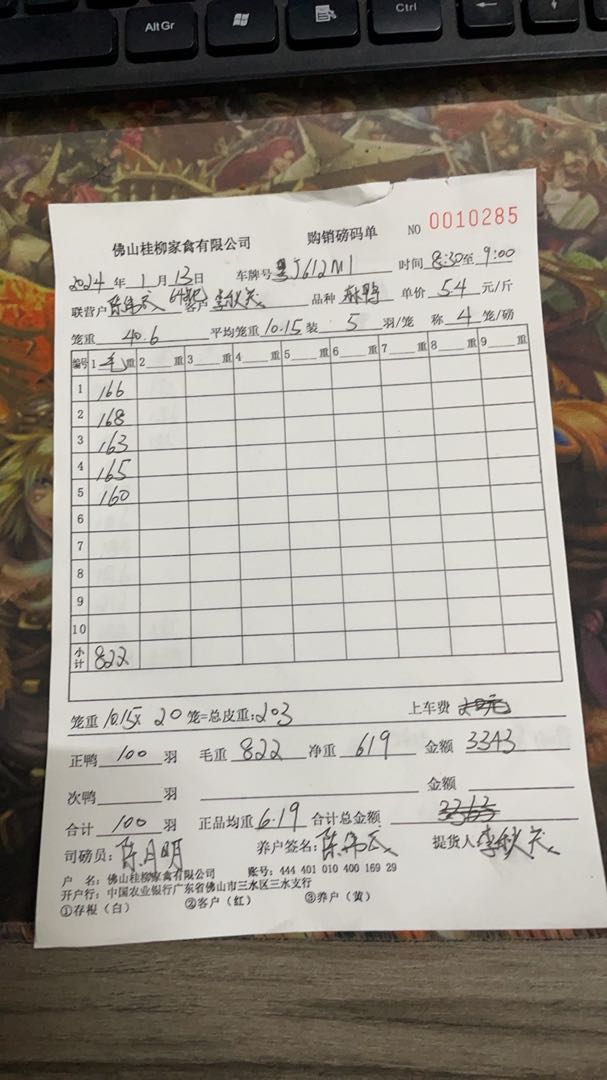 Alt Gr
Ctrl
佛山桂柳家禽有限公司 购销磅码单 NO 0010285
2024 年 1 月 13 日 车牌号 J612M1 时间 8:30 至 9:00
联营户 陈伟民 客户 李秋天 品种 单价 5.4 元/斤
笼重 40.6 平均笼重 10.15 装 5 羽/笼 称 4 笼/磅
编号 1 毛 重 2 重 3 重 4 重 5 重 6 重 7 重 8 重 9 重
1 166
2 168
3 163
4 165
5 160
6
7
8
9
10
小计 822
笼重 10.15× 20 笼=总皮重: 203 上车费
正鸭 100 羽 毛重 822 净重 619 金额 3343
次鸭 羽 金额
合计 100 羽 正品均重 6.19 合计总金额
司磅员: 陈月明 养户签名: 陈伟民 提货人 李秋天
户 名: 佛山桂柳家禽有限公司 账号: 444 401 010 400 169 29
开户行: 中国农业银行广东省佛山市三水区三水支行
①存根(白) ②客户(红) ③养户(黄)